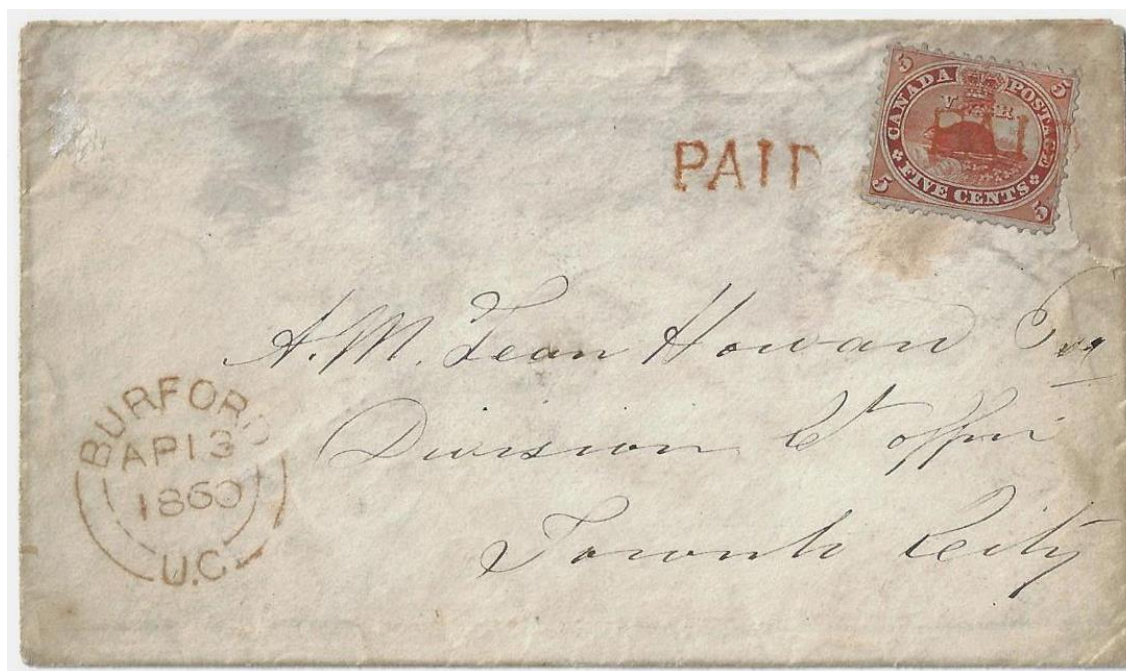 5 5
CANADA POSTAGE
V R
FIVE CENTS
5 5
PAID
A. M. Lean Howard Esq
Division Ct office
Toronto City
BURFORD
AP 13
1860
U.C.